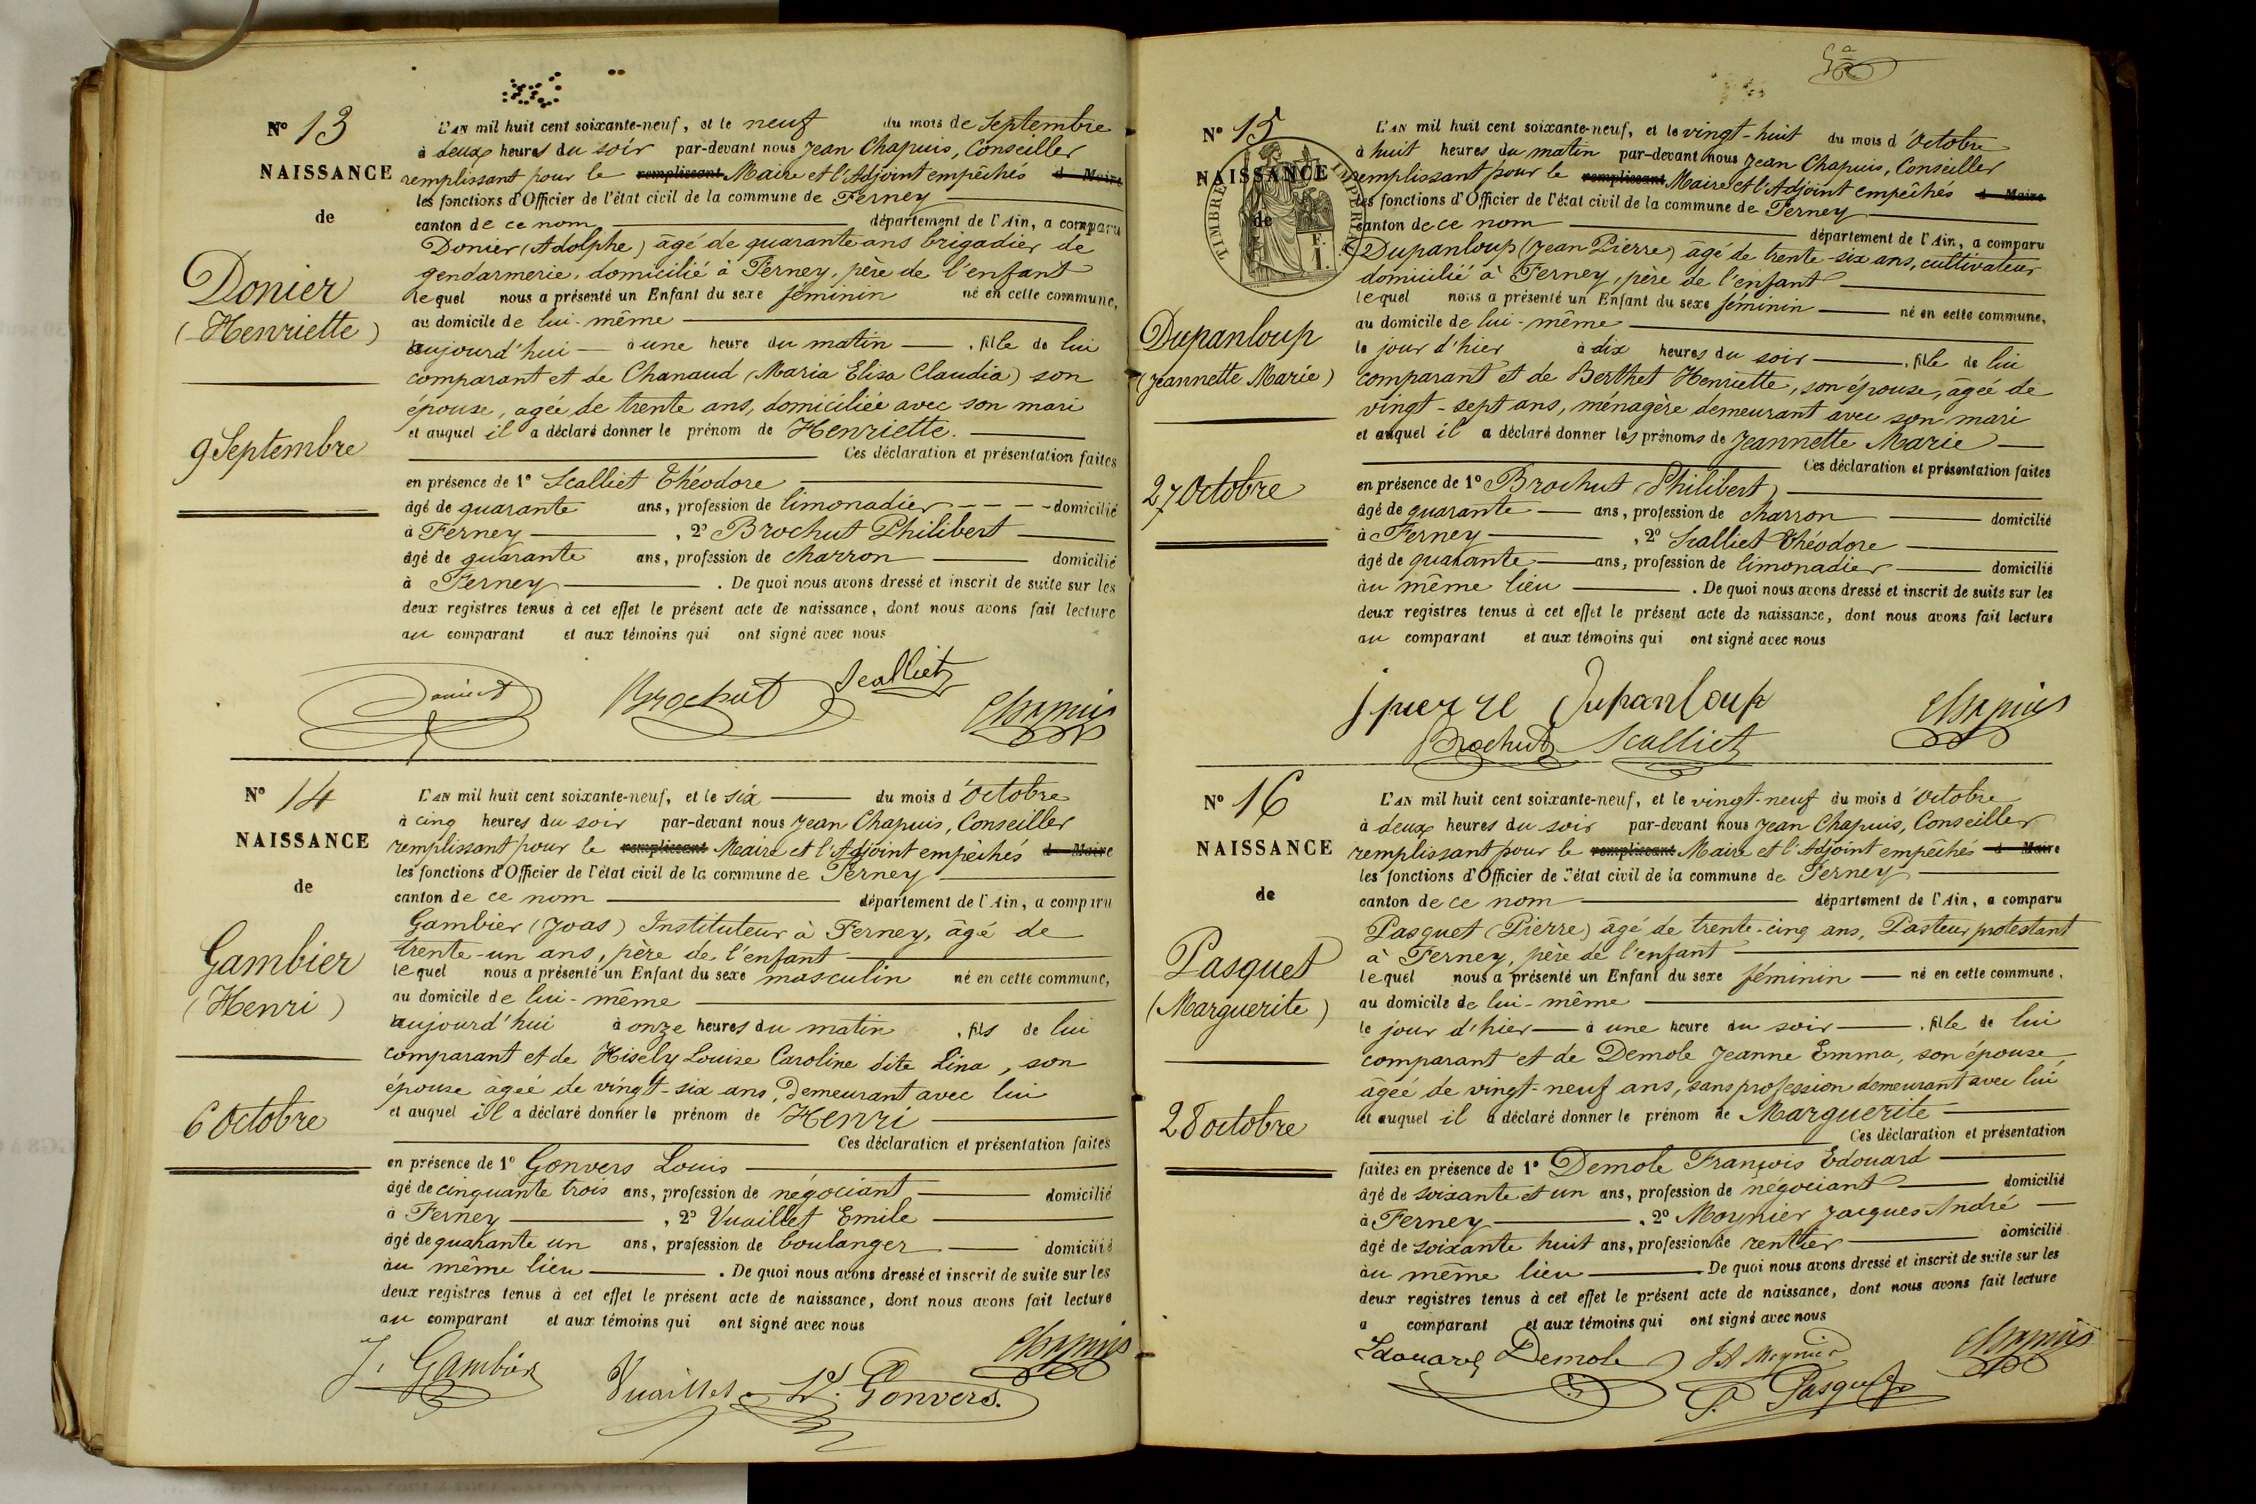 N° 13
NAISSANCE
de
Donier
(Henriette)
9 Septembre
L'AN mil huit cent soixante-neuf, et le neuf du mois de Septembre
à deux heures du soir par-devant nous Jean Chapuis, Conseiller
remplissant pour le remplissant Maire et l'Adjoint empêchés d Maire
les fonctions d'Officier de l'état civil de la commune de Ferney
canton de ce nom département de l'Ain, a comparu
Donier (Adolphe) âgé de quarante ans brigadier de
gendarmerie, domicilié à Ferney, père de l'enfant
lequel nous a présenté un Enfant du sexe féminin né en cette commune,
au domicile de lui-même
aujourd'hui à une heure du matin , fille de lui
comparant et de Chanaud (Maria Elisa Claudia) son
épouse, agée de trente ans, domiciliée avec son mari
et auquel il a déclaré donner le prénom de Henriette.
Ces déclaration et présentation faites
en présence de 1° Scalliet Théodore
âgé de quarante ans, profession de limonadier domicilié
à Ferney , 2° Brochut Philibert
âgé de quarante ans, profession de charron domicilié
à Ferney . De quoi nous avons dressé et inscrit de suite sur les
deux registres tenus à cet effet le présent acte de naissance, dont nous avons fait lecture
au comparant et aux témoins qui ont signé avec nous
Donier Brochut Scalliet Chapuis
N° 14
NAISSANCE
de
Gambier
(Henri)
6 Octobre
L'AN mil huit cent soixante-neuf, et le six du mois d'Octobre
à cinq heures du soir par-devant nous Jean Chapuis, Conseiller
remplissant pour le remplissant Maire et l'Adjoint empêchés d Maire
les fonctions d'Officier de l'état civil de la commune de Ferney
canton de ce nom département de l'Ain, a comparu
Gambier (Joas) Instituteur à Ferney, âgé de
trente-un ans, père de l'enfant
lequel nous a présenté un Enfant du sexe masculin né en cette commune,
au domicile de lui-même
aujourd'hui à onze heures du matin , fils de lui
comparant et de Hisely Louise Caroline dite Lina, son
épouse âgée de vingt-six ans, Demeurant avec lui
et auquel il a déclaré donner le prénom de Henri
Ces déclaration et présentation faites
en présence de 1° Gonvers Louis
âgé de cinquante trois ans, profession de négociant domicilié
à Ferney , 2° Vuaillet Emile
âgé de quarante un ans, profession de boulanger domicilié
au même lieu . De quoi nous avons dressé et inscrit de suite sur les
deux registres tenus à cet effet le présent acte de naissance, dont nous avons fait lecture
au comparant et aux témoins qui ont signé avec nous
J. Gambier Vuaillet Ls. Gonvers. Chapuis
N° 15
NAISSANCE
de
TIMBRE IMPERIAL
1 F.
Dupanloup
(Jeannette Marie)
27 Octobre
L'AN mil huit cent soixante-neuf, et le vingt-huit du mois d'Octobre
à huit heures du matin par-devant nous Jean Chapuis, Conseiller
remplissant pour le remplissant Maire et l'Adjoint empêchés d Maire
les fonctions d'Officier de l'état civil de la commune de Ferney
canton de ce nom département de l'Ain, a comparu
Dupanloup (Jean Pierre) âgé de trente-six ans, cultivateur
domicilié à Ferney, père de l'enfant
lequel nous a présenté un Enfant du sexe féminin né en cette commune,
au domicile de lui-même
le jour d'hier à dix heures du soir , fille de lui
comparant et de Berthet Henriette, son épouse, âgée de
vingt-sept ans, ménagère demeurant avec son mari
et auquel il a déclaré donner les prénoms de Jeannette Marie
Ces déclaration et présentation faites
en présence de 1° Brochut (Philibert)
âgé de quarante ans, profession de charron domicilié
à Ferney , 2° Scalliet Théodore
âgé de quarante ans, profession de limonadier domicilié
au même lieu . De quoi nous avons dressé et inscrit de suite sur les
deux registres tenus à cet effet le présent acte de naissance, dont nous avons fait lecture
au comparant et aux témoins qui ont signé avec nous
j pierre Dupanloup Chapuis
Brochut Scalliet
N° 16
NAISSANCE
de
Pasquet
(Marguerite)
28 octobre
L'AN mil huit cent soixante-neuf, et le vingt-neuf du mois d'Octobre
à deux heures du soir par-devant nous Jean Chapuis, Conseiller
remplissant pour le remplissant Maire et l'Adjoint empêchés d Maire
les fonctions d'Officier de l'état civil de la commune de Ferney
canton de ce nom département de l'Ain, a comparu
Pasquet (Pierre) âgé de trente-cinq ans, Pasteur protestant
à Ferney, père de l'enfant
lequel nous a présenté un Enfant du sexe féminin né en cette commune,
au domicile de lui-même
le jour d'hier à une heure du soir , fille de lui
comparant et de Demole Jeanne Emma, son épouse
âgée de vingt-neuf ans, sans profession demeurant avec lui
et auquel il a déclaré donner le prénom de Marguerite
Ces déclaration et présentation
faites en présence de 1° Demole François Edouard
âgé de soixante et un ans, profession de négociant domicilié
à Ferney , 2° Moynier Jacques André
âgé de soixante huit ans, profession de rentier domicilié
au même lieu De quoi nous avons dressé et inscrit de suite sur les
deux registres tenus à cet effet le présent acte de naissance, dont nous avons fait lecture
a comparant et aux témoins qui ont signé avec nous
Edouard Demole JA Moynier Chapuis
P. Pasquet